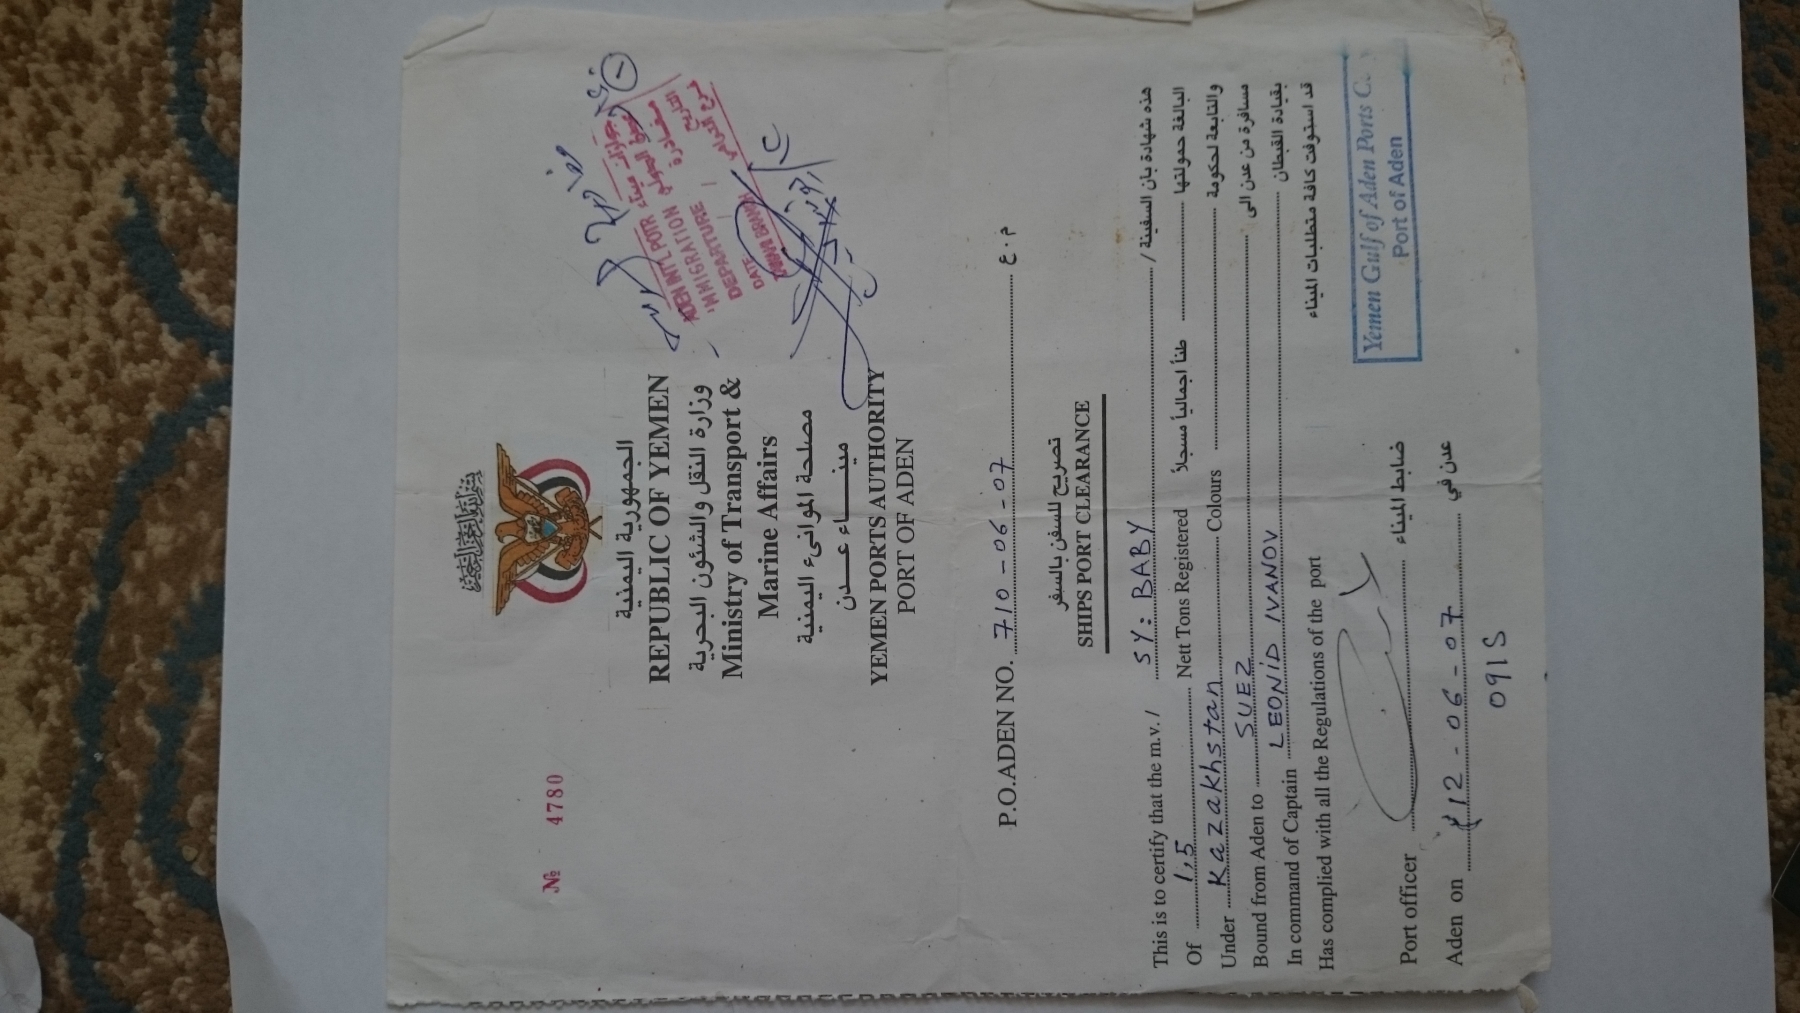 № 4780
الجمهورية اليمنية
REPUBLIC OF YEMEN
وزارة النقل والشئون البحرية
Ministry of Transport &
Marine Affairs
مصلحة الموانىء اليمنية
مينـــاء عـــدن
YEMEN PORTS AUTHORITY
PORT OF ADEN
ADEN INT'L PORT
IMMIGRATION
DEPARTURE
DATE
P.O.ADEN NO. 710-06-07 م.ع
تصريح للسفن بالسفر
SHIPS PORT CLEARANCE
This is to certify that the m.v./ SY: BABY هذه شهادة بان السفينة /
Of 1,5 Nett Tons Registered طناً اجمالياً مسجلاً البالغة حمولتها
Under Kazakhstan Colours والتابعة لحكومة
Bound from Aden to SUEZ مسافرة من عدن الى
In command of Captain LEONID IVANOV بقيادة القبطان
Has complied with all the Regulations of the port قد استوفت كافة متطلبات الميناء
Yemen Gulf of Aden Ports C.
Port of Aden
Port officer ضابط الميناء
Aden on 12-06-07 عدن في